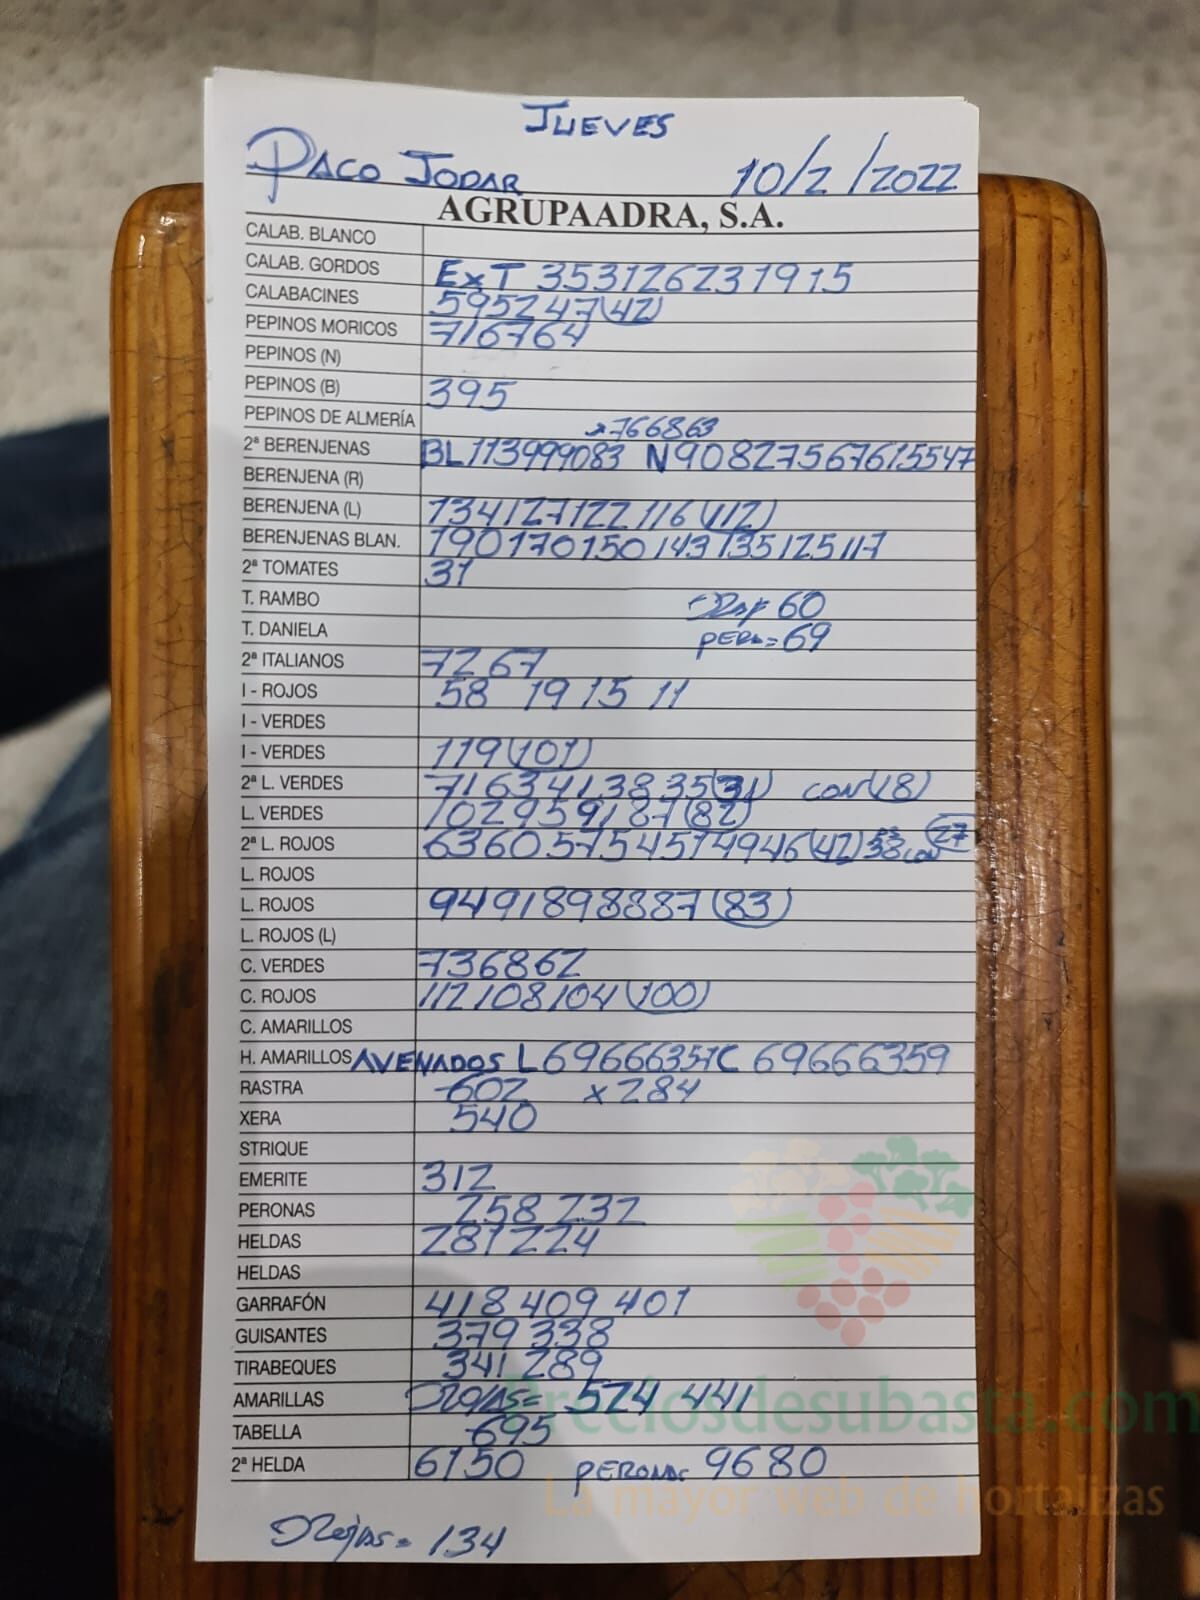 JUEVES
PACO JODAR 10/2/2022
AGRUPAADRA, S.A.
CALAB. BLANCO
CALAB. GORDOS EXT 353126231915
CALABACINES 595247(42)
PEPINOS MORICOS 716764
PEPINOS (N)
PEPINOS (B) 395
PEPINOS DE ALMERÍA
766863
2ª BERENJENAS BL113999083 N90827567615547
BERENJENA (R)
BERENJENA (L) 134127122 116(112)
BERENJENAS BLAN. 190170150143135125117
2ª TOMATES 31
T. RAMBO 60
T. DANIELA PERA=69
2ª ITALIANOS 7267
I - ROJOS 58 19 15 11
I - VERDES
I - VERDES 119(101)
2ª L. VERDES 7163413835(31) CON(18)
L. VERDES 102959187(82)
2ª L. ROJOS 636057545149 46(42)38 CON 27
L. ROJOS
L. ROJOS 9491898887(83)
L. ROJOS (L)
C. VERDES 736862
C. ROJOS 112108104(100)
C. AMARILLOS
H. AMARILLOS AVENADOS L69666357C 69666359
RASTRA 602 x 284
XERA 540
STRIQUE
EMERITE 312
PERONAS 258 232
HELDAS 281224
HELDAS
GARRAFÓN 418 409 401
GUISANTES 379 338
TIRABEQUES 341 289
AMARILLAS ROJAS= 524 441
TABELLA 695
2ª HELDA 6150 PERONA= 9680
Rojas= 134
Preciosdesubasta.com
La mayor web de hortalizas